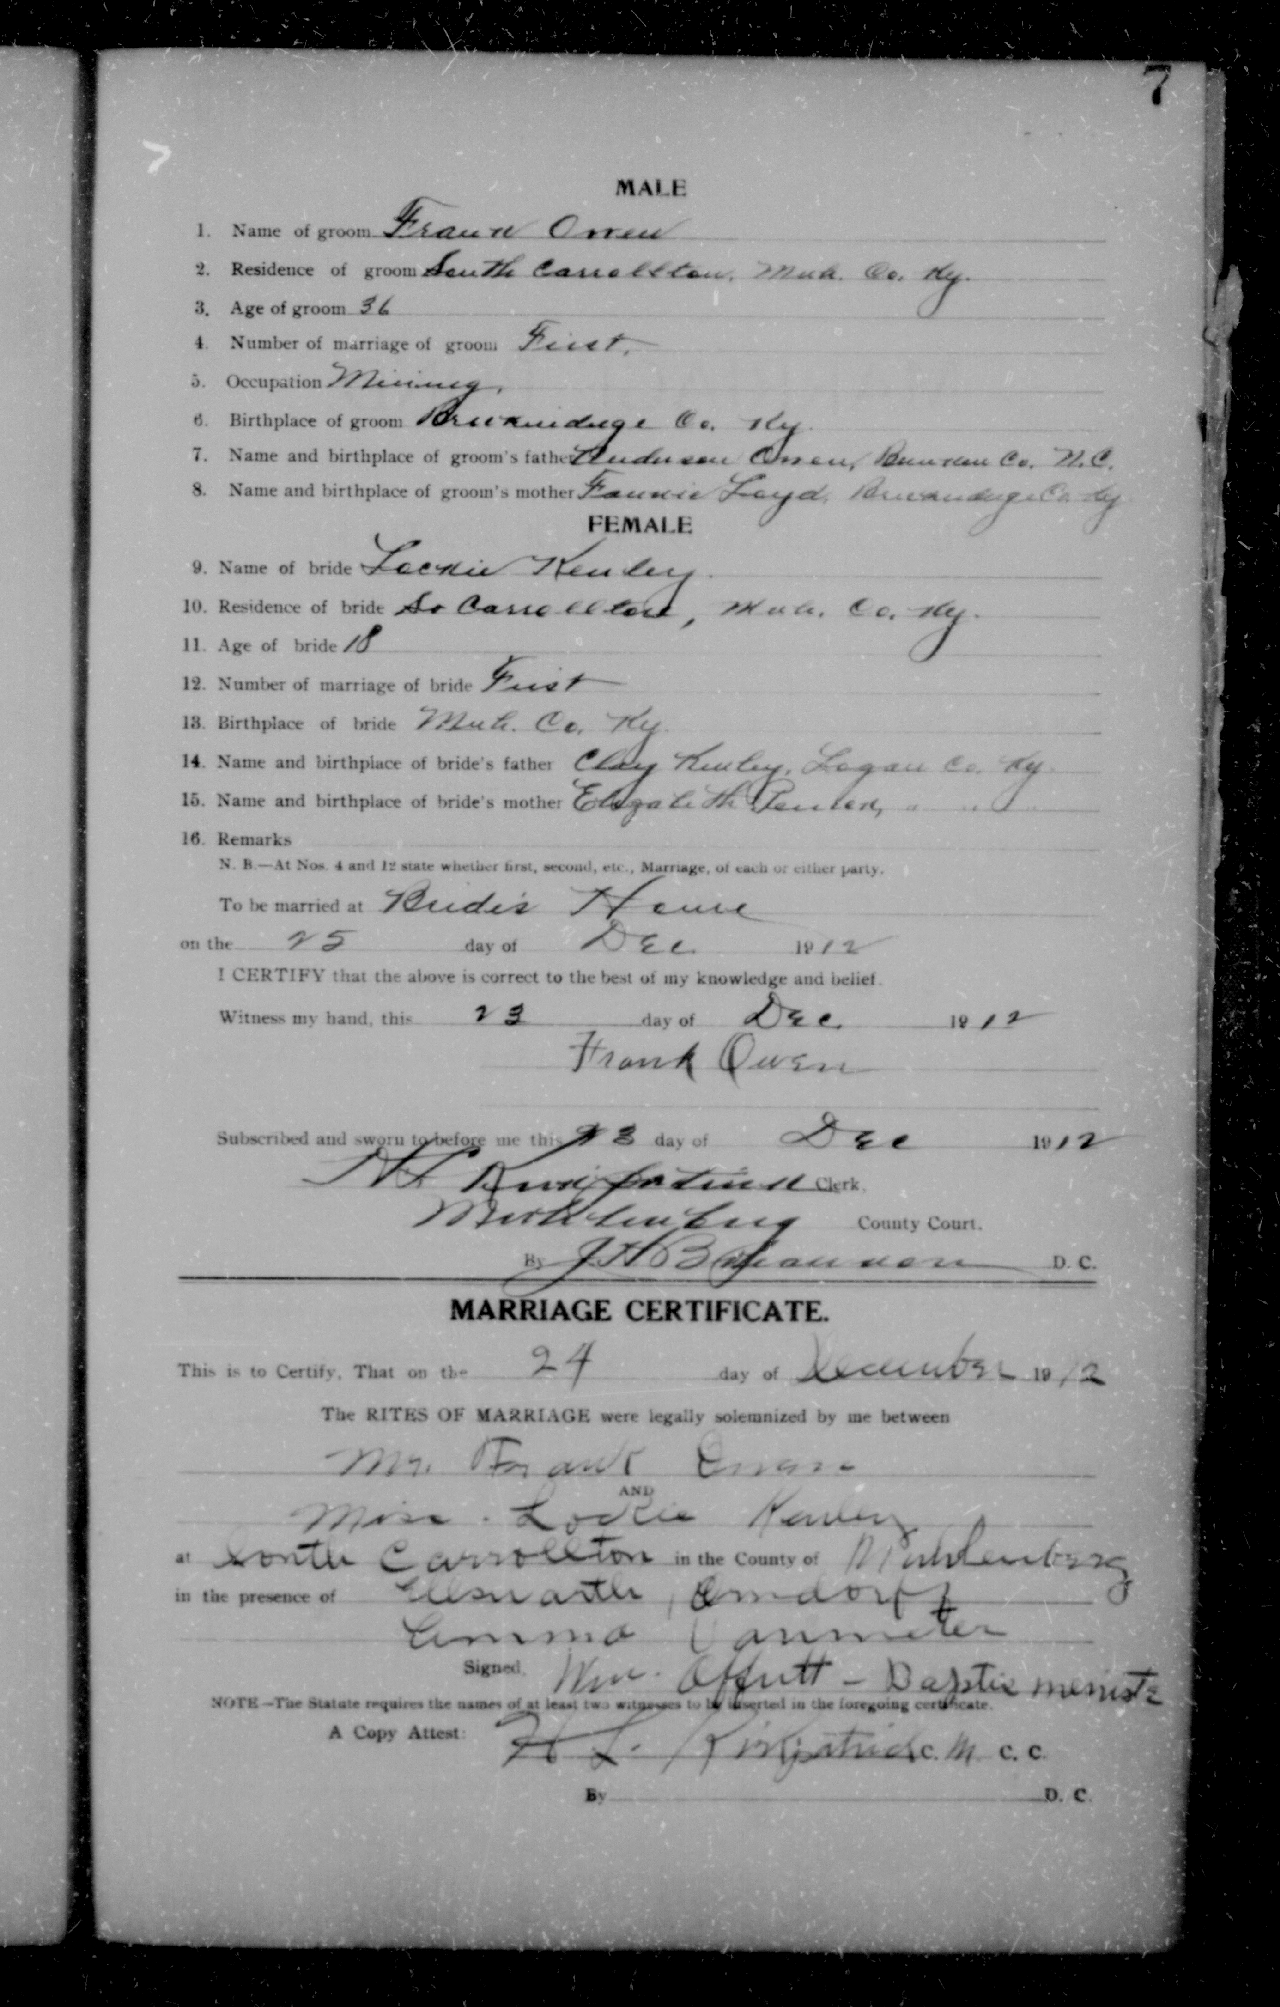 7
MALE
1. Name of groom Frank Owen
2. Residence of groom South Carrollton, Muh. Co. Ky.
3. Age of groom 36
4. Number of marriage of groom First.
5. Occupation Mining.
6. Birthplace of groom Breckinridge Co. Ky.
7. Name and birthplace of groom's father Anderson Owen, Co. N.C.
8. Name and birthplace of groom's mother Fannie Loyd, Breckinridge Co Ky
FEMALE
9. Name of bride Lockie Kenley.
10. Residence of bride So Carrollton, Muh. Co. Ky.
11. Age of bride 18
12. Number of marriage of bride First
13. Birthplace of bride Muh. Co. Ky.
14. Name and birthplace of bride's father Clay Kenley, Logan Co. Ky.
15. Name and birthplace of bride's mother Elizabeth " " "
16. Remarks
N. B.—At Nos. 4 and 12 state whether first, second, etc., Marriage, of each or either party.
To be married at Bride's Home
on the 25 day of Dec 1912
I CERTIFY that the above is correct to the best of my knowledge and belief.
Witness my hand, this 23 day of Dec. 1912
Frank Owen
Subscribed and sworn to before me this 23 day of Dec 1912
H L Kirkpatrick Clerk,
Muhlenberg County Court.
By J H B D. C.
MARRIAGE CERTIFICATE.
This is to Certify, That on the 24 day of December 1912
The RITES OF MARRIAGE were legally solemnized by me between
Mr. Frank Owen
AND
Miss. Lockie Kenley
at South Carrollton in the County of Muhlenberg
in the presence of Orndorff
Emma Vanmeter
Signed, Wm. Offutt – Baptis menistr
NOTE—The Statute requires the names of at least two witnesses to be inserted in the foregoing certificate.
A Copy Attest: H L. Kirkpatrick C. M. C. C.
By D. C.